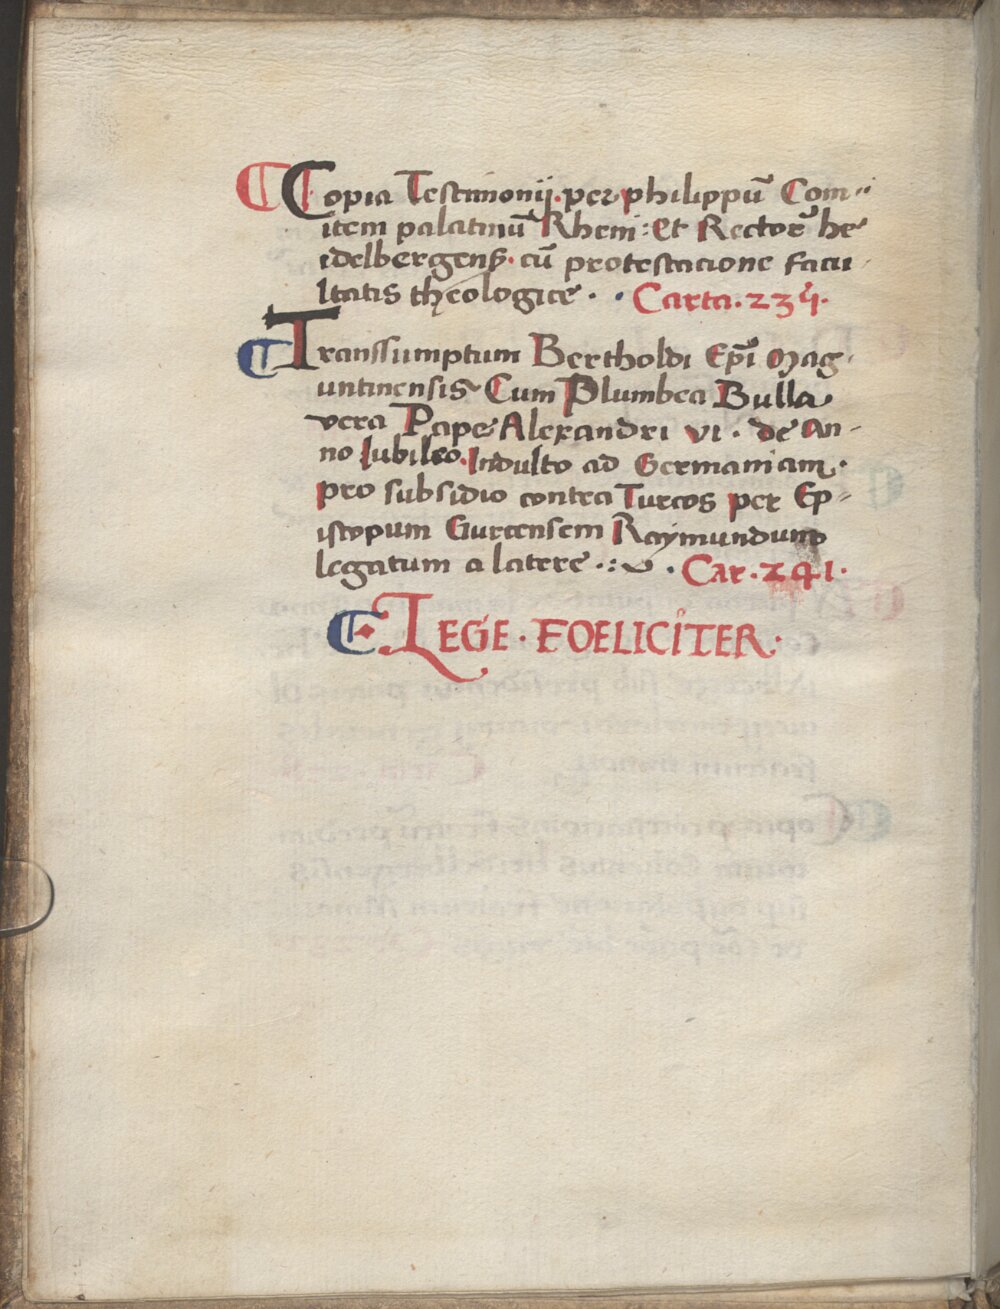 Copia Testimonij per philippū Com-
item palatinū Rheni: et Rectorē he
idelbergenß. cū protestacione facu
ltatis theologice. Carta. 234.
Transsumptum Bertholdi Ep̄i Mag-
untinensis Cum Plumbea Bulla
vera Pape Alexandri vi. de an-
no Iubileo. Indulto ad Germaniam.
pro subsidio contra Turcos per Ep-
iscopum Gurcensem Raymundum
legatum a latere. Car. 241.
LEGE. FOELICITER.